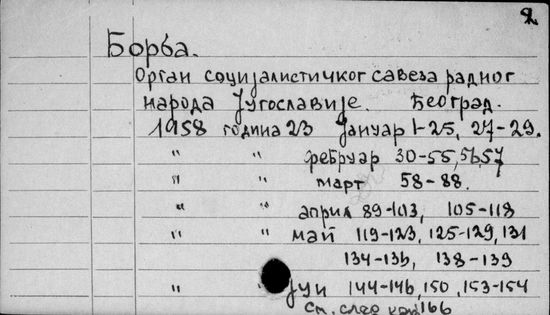 2
Борба.
Орган социјалистичког савеза радног
народа Југославије. Београд.
1958 година 23 Јануар 1-25, 27-29.
" " фебруар 30-55, 56, 57
" " март 58-88.
" " април 89-103, 105-118
" " май 119-123, 125-129, 131
134-136, 138-139
" " јун 144-146, 150, 153-154
См. след 166